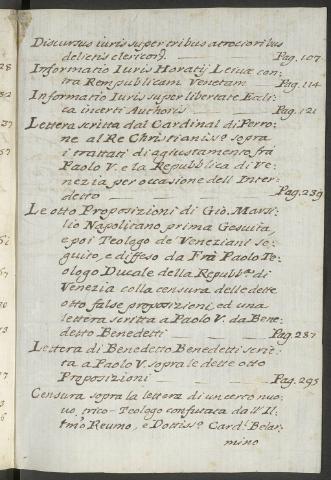 Discursus iuris super tribus atrocioribus
delictis clericoꝝ. Pag. 107
Informatio Iuris Horatij Leiuæ con-
tra Rempublicam Venetam Pag. 114
Informatio Iuris super libertate Eccli-
ca incerti Authoris Pag. 121
Lettera scritta dal Cardinal di Perro-
ne al Re Christianis.º sopra
i trattati di aggiustamento frà
Paolo V. e la Repubblica di Ve-
nezia per occasione dell' Inter-
detto Pag. 239
Le otto Proposizioni di Gio. Marsi-
lio Napolitano prima Gesuita,
e poi Teologo de Veneziani se-
guito, e diffeso da Frà Paolo Te-
ologo Ducale della Repubb.ca di
Venezia colla censura delle dette
otto false proposizioni, ed una
lettera scritta a Paolo V. da Bene-
detto Benedetti Pag. 287
Lettera di Benedetto Benedetti scrit-
ta a Paolo V. sopra le dette otto
Proposizioni Pag. 295
Censura sopra la lettera di un certo nuo-
uo, trico-Teologo confutata dall' Il-
tmo Reumo, e Dottiss.º Card. Belar-
mino